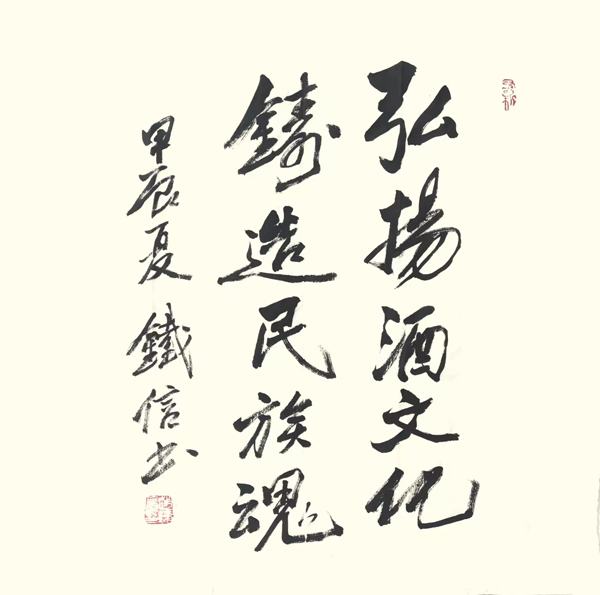 弘揚酒文化
鑄造民族魂
甲辰夏 鐵信书